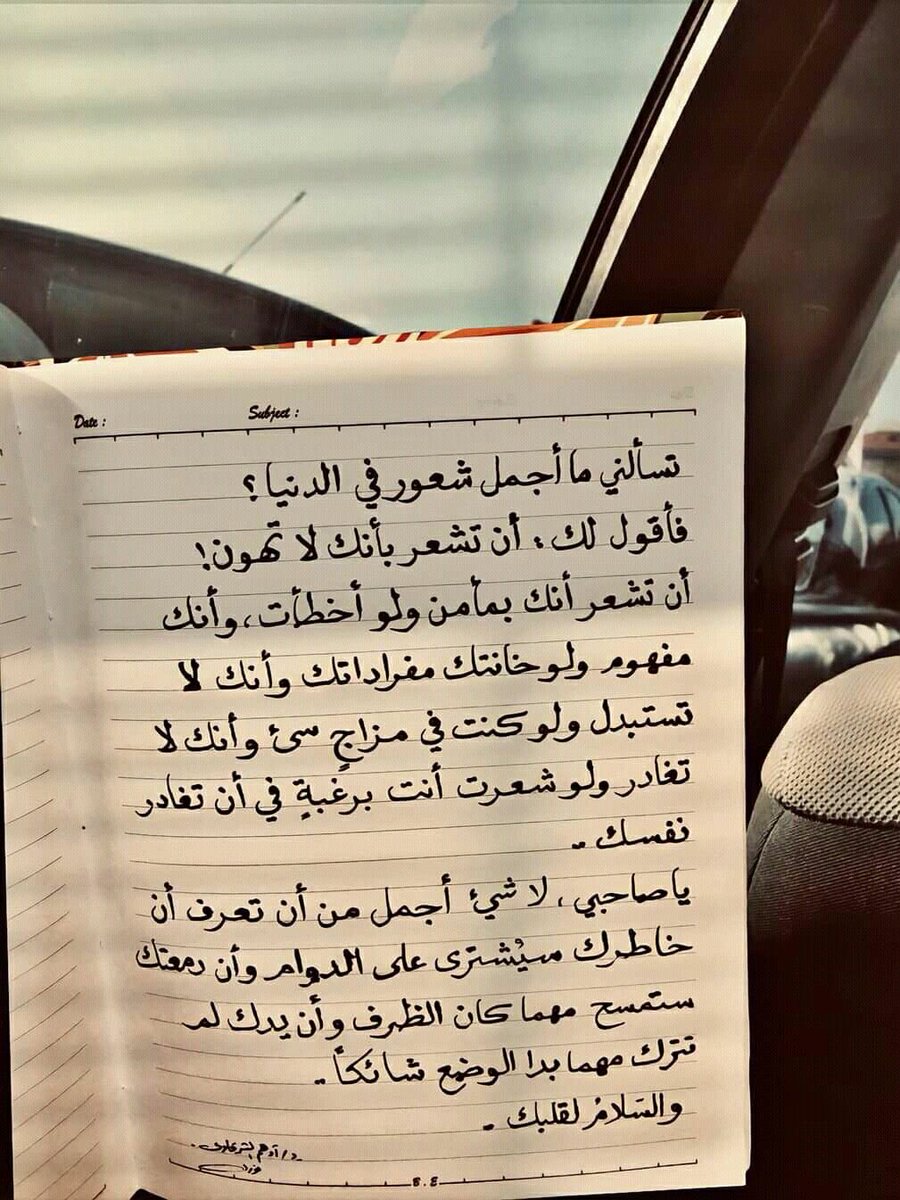 Date :
Subject :
تسألني ما أجمل شعور في الدنيا؟
فأقول لك : أن تشعر بأنك لا تهون!
أن تشعر أنك بمأمن ولو أخطأت، وأنك
مفهوم ولو خانتك مفراداتك وأنك لا
تستبدل ولو كنت في مزاجٍ سئ وأنك لا
تغادر ولو شعرت أنت برغبةٍ في أن تغادر
نفسك ..
ياصاحبي، لا شيئ أجمل من أن تعرف أن
خاطرك سيُشترى على الدوام وأن دمعتك
ستمسح مهما كان الظرف وأن يدك لم
تترك مهما بدا الوضع شائكاً ..
والسّلامُ لقلبك .
د/أدهم الشرقاوي.